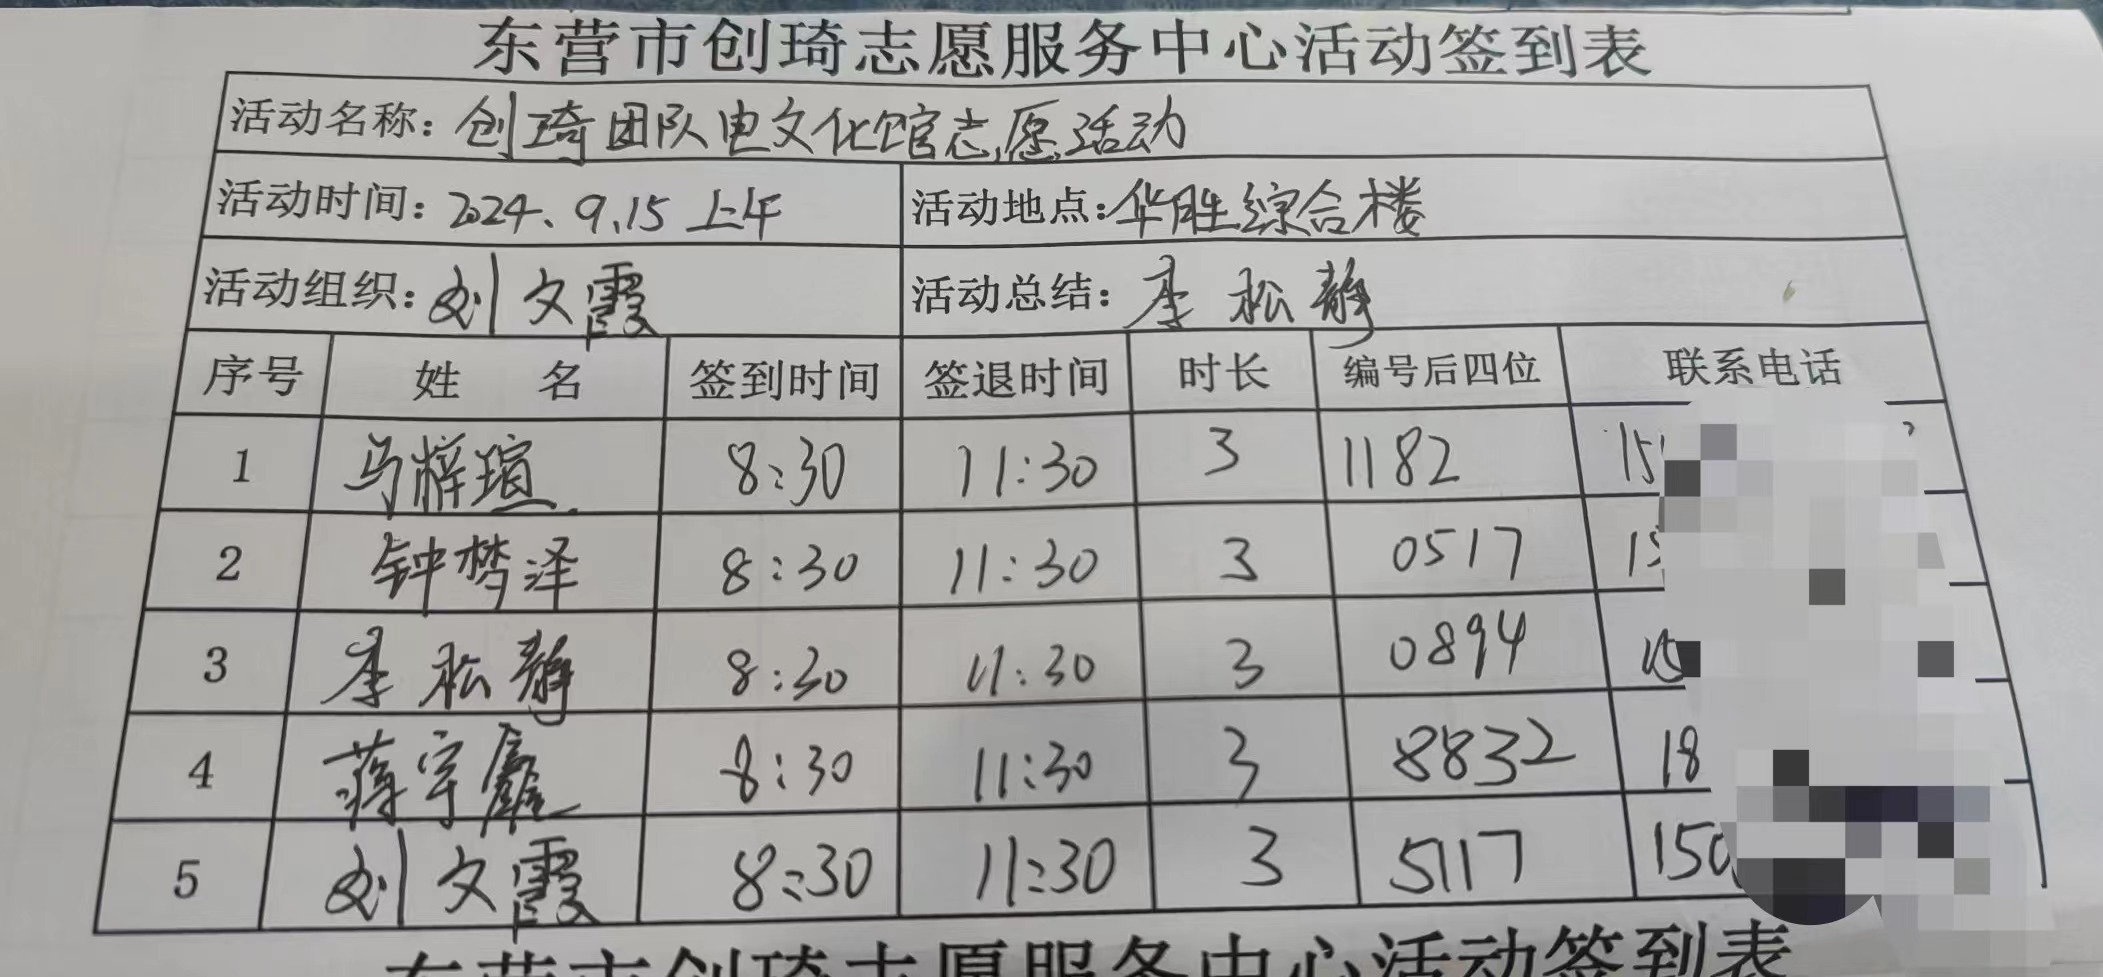 东营市创琦志愿服务中心活动签到表
活动名称：创琦团队电文化馆志愿活动
活动时间：2024、9.15 上午 活动地点：华胜综合楼
活动组织：刘文霞 活动总结：李松静
序号 姓 名 签到时间 签退时间 时长 编号后四位 联系电话
1 马梓瑄 8:30 11:30 3 1182 15
2 钟梦泽 8:30 11:30 3 0517 15
3 李松静 8:30 11:30 3 0894 15
4 蒋宇 8:30 11:30 3 8832 18
5 刘文霞 8:30 11:30 3 5117 150
东营市创琦志愿服务中心活动签到表